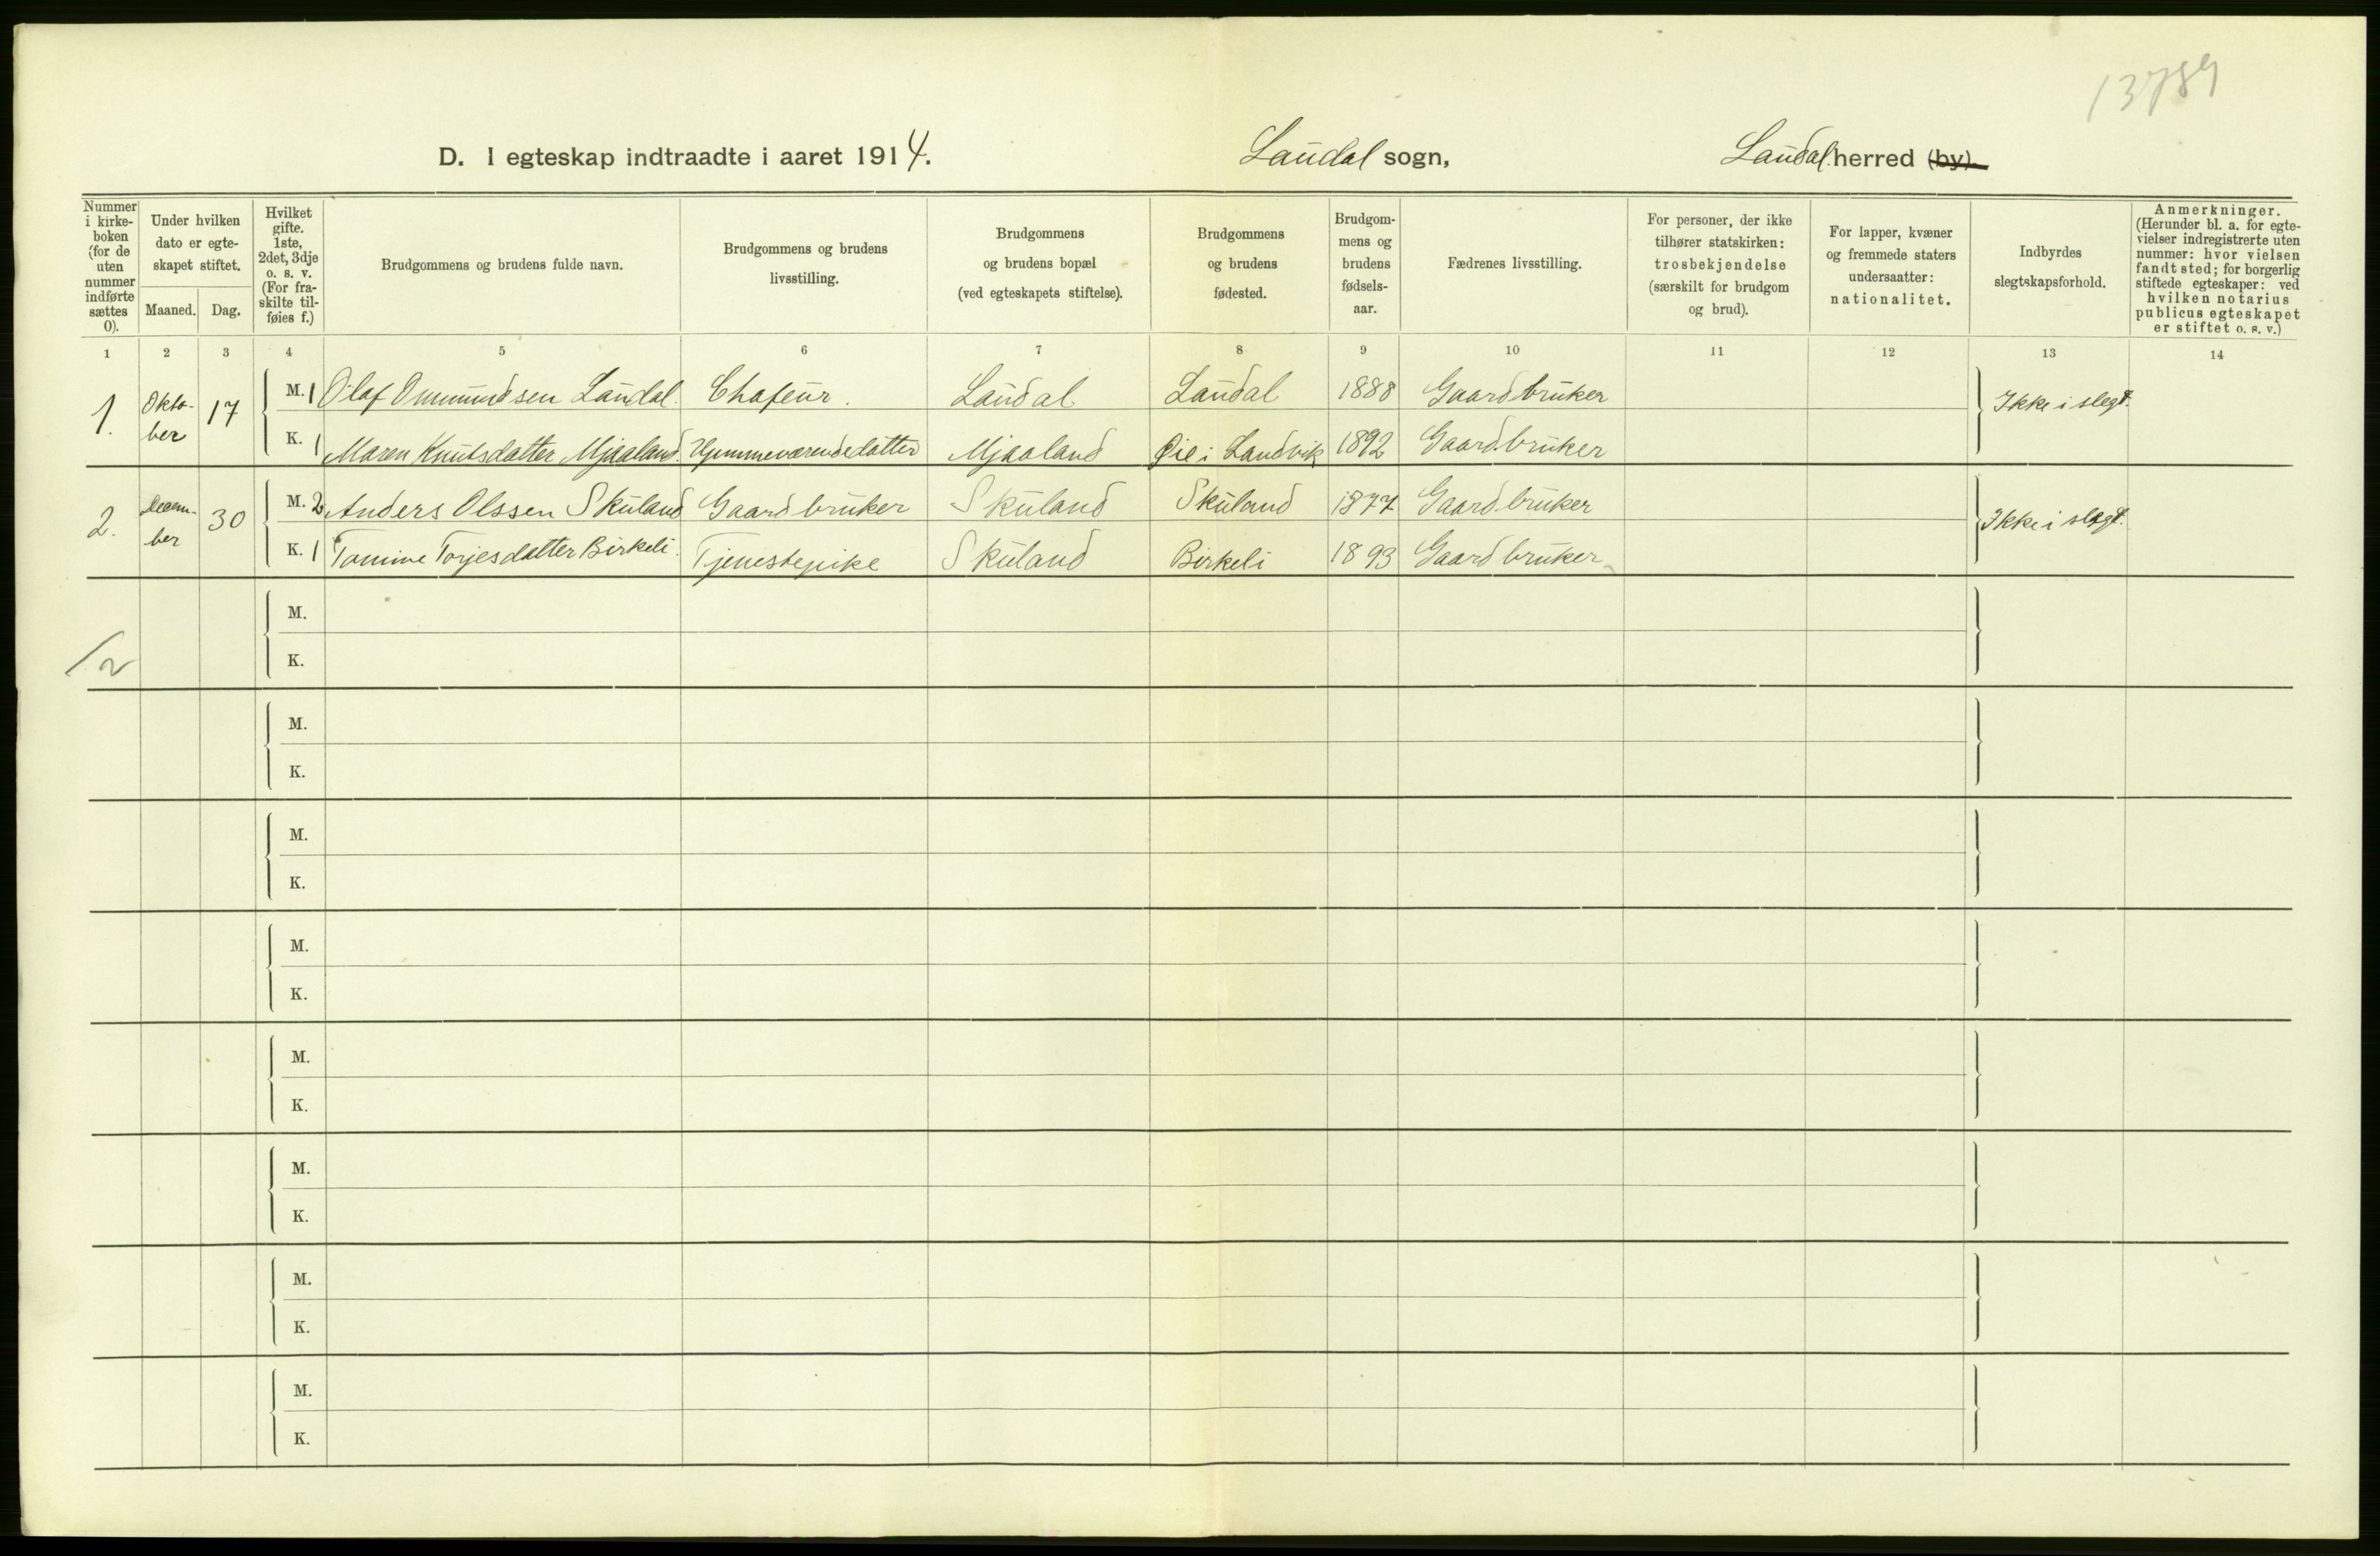 13789
D. I egteskap indtraadte i aaret 1914. Laudal sogn, Laudal herred (by).
Nummer i kirke-boken (for de uten nummer indførte sættes 0).
Under hvilken dato er egte-skapet stiftet.
Maaned. Dag.
Hvilket gifte. 1ste, 2det, 3dje o. s. v. (For fra-skilte til-føies f.)
Brudgommens og brudens fulde navn.
Brudgommens og brudens livsstilling.
Brudgommens og brudens bopæl (ved egteskapets stiftelse).
Brudgommens og brudens fødested.
Brudgom-mens og brudens fødsels-aar.
Fædrenes livsstilling.
For personer, der ikke tilhører statskirken: trosbekjendelse (særskilt for brudgom og brud).
For lapper, kvæner og fremmede staters undersaatter: nationalitet.
Indbyrdes slegtskapsforhold.
Anmerkninger. (Herunder bl. a. for egte-vielser indregistrerte uten nummer: hvor vielsen fandt sted; for borgerlig stiftede egteskaper: ved hvilken notarius publicus egteskapet er stiftet o. s. v.)
1 2 3 4 5 6 7 8 9 10 11 12 13 14
1. Okto-ber 17 M. 1 Olaf Ommundsen Laudal. Chafeur. Laudal Laudal 1888 Gaardbruker Ikke i slegt.
K. 1 Maren Knutsdatter Mjaaland. Hjemmeværende datter Mjaaland Øie i Landvik 1892 Gaardbruker
2. Decem-ber 30 M. 2 Anders Olssen Skuland Gaardbruker Skuland Skuland 1877 Gaardbruker Ikke i slegt.
K. 1 Tomine Torjesdatter Birkeli. Tjenestepike Skuland Birkeli 1893 Gaardbruker
M.
/2 K.
M.
K.
M.
K.
M.
K.
M.
K.
M.
K.
M.
K.
M.
K.